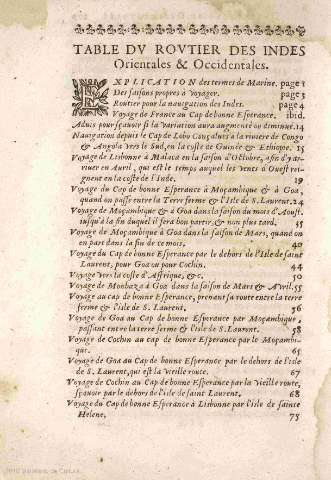 TABLE DV ROVTIER DES INDES
Orientales & Occidentales.
EXPLICATION des termes de Marine. page 1
Des saisons propres à voyager. page 3
Routier pour la nauigation des Indes. page 4
Voyage de France au Cap de bonne Esperance. ibid.
Aduis pour sçauoir si la variation aura augmenté ou diminué. 14
Nauigation depuis le Cap de Lobo Gonçalues à la riuiere de Congo
& Angola vers le Sud, en la coste de Guinée & Ethiopie. 15
Voyage de Lisbonne à Malaca en la saison d'Octobre, afin d'y ar-
riuer en Auril, qui est le temps auquel les vents d'Ouest re-
gnent en la coste de l'Inde. 19
Voyage du Cap de bonne Esperance à Moçambique & à Goa,
quand on passe entre la Terre ferme & l'Isle de S. Laurent. 24
Voyage de Moçambique & à Goa dans la saison du mois d'Aoust.
iusqu'à la fin duquel il fera bon partir, & non plus tard. 35
Voyage de Moçambique à Goa dans la saison de Mars, quand on
en part dans la fin de ce mois. 40
Voyage du Cap de bonne Esperance par le dehors de l'Isle de saint
Laurent, pour Goa ou pour Cochin. 44
Voyage vers la coste d'Affrique, &c. 50
Voyage de Monbaza à Goa dans la saison de Mars & d'Auril. 55
Voyage au cap de bonne Esperance, prenant sa route entre la terre
ferme & l'Isle de S. Laurent, 56
Voyage de Goa au Cap de bonne Esperance par Moçambique,
passant entre la terre ferme & l'Isle de S. Laurent. 58
Voyage de Cochin au cap de bonne Esperance par le Moçambi-
que. 65
Voyage de Goa au Cap de bonne Esperance par le dehors de l'Isle
de S. Laurent, qui est la vieille route. 67
Voyage de Cochin au Cap de bonne Esperance par la Vieille route,
sçauoir par le dehors de l'isle de saint Laurent. 68
Voyage du Cap de bonne Esperance à Lisbonne par l'isle de sainte
Helene. 73